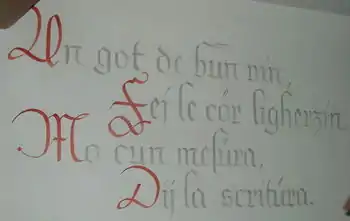 Un got de bun vin,
Fej le cör ligherzin
Mo cun mesüra,
Dij la scritüra.